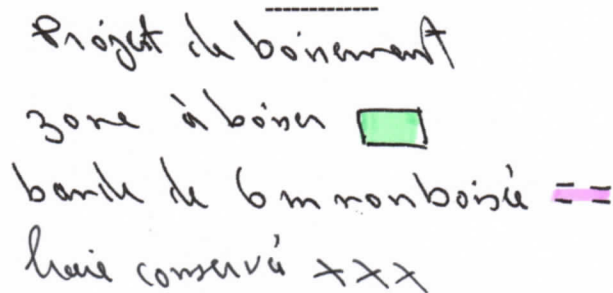 Projet de boisement
zone à boiser
bande de 6 m non boisée
haie conservée xxx